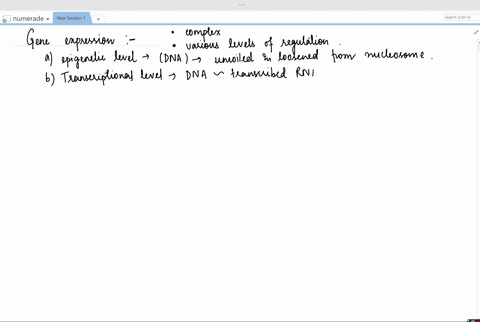 numerade
New Section 1
Search (Ctrl+E)
Gene expression :-
• complex
• various levels of regulation.
a) epigenetic level → (DNA) → uncoiled & loosened from nucleosome.
b) Transcriptional level → DNA ~ transcribed RNA